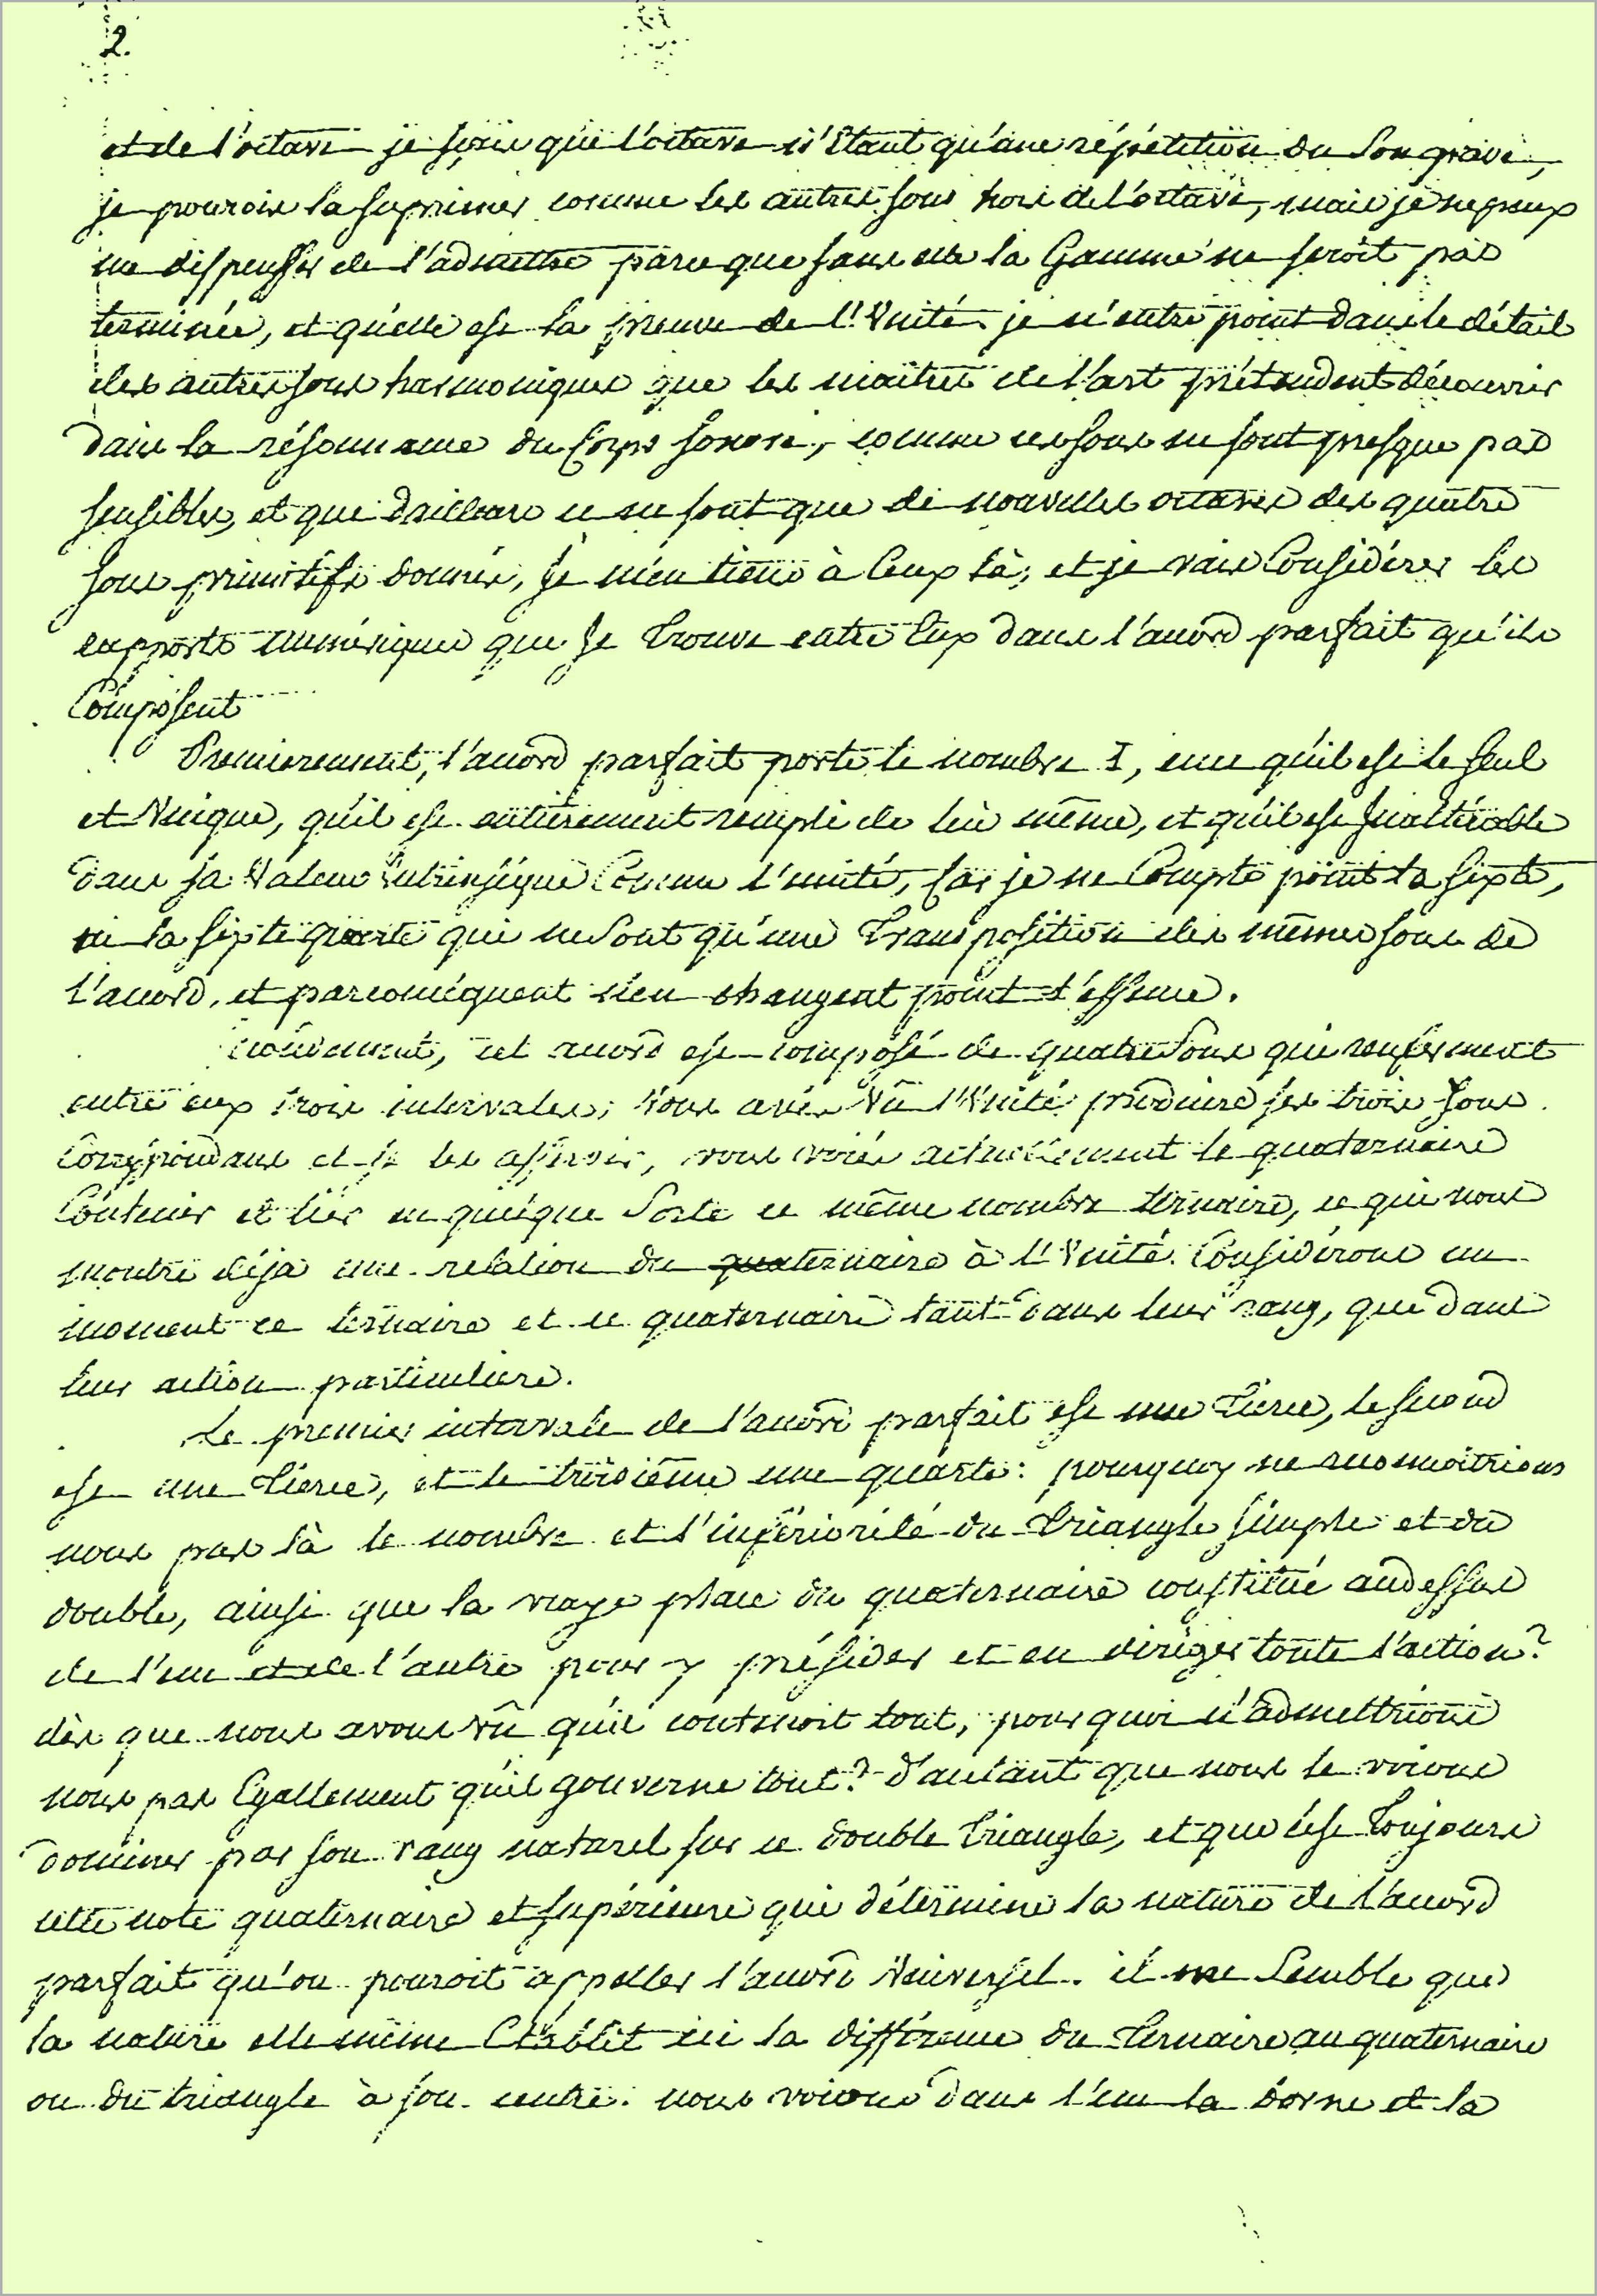 2.
et de l'octave je sçais que l'octave n'étant qu'une répétition du son grave,
je pourois la suprimer comme les autres sons hors de l'octave, mais je ne peux
me dispenser de l'admettre parceque sans elle la Gamme ne seroit pas
terminée, et qu'elle est la preuve de l'Unité. je n'entre point dans le détail
des autres sons harmoniques que les maîtres de l'art prétendent découvrir
dans la résonnance du Corps sonore, comme ces sons ne sont presque pas
sensibles, et que dailleurs ce ne sont que de nouvelles octaves des quatre
sons primitifs donnés, je m'en tiens à Ceux là, et je vais Considérer les
rapports numériques que je trouve entre Eux dans l'accord parfait qu'ils
Composent
Premierement, l'accord parfait porte le nombre I, en ce qu'il est le seul
et Unique, qu'il est entièrement rempli de lui même, et qu'il est Inaltérable
dans sa Valeur intrinsèque Comme l'unité, Car je ne Compte point la sixte,
ni la sixte quarte qui ne sont qu'une Transposition des mêmes sons de
l'accord, et par conséquent n'en changent point l'essence.
cet accord est composé de quatre sons qui renferment
entre eux trois intervales; Vous avés Vû l'Unité produire ses trois sons
Correspondans et se les asservir, vous voiés actuellement le quaternaire
Contenir et lier en quelque sorte ce même nombre ternaire, ce qui nous
montre déja une relation du quaternaire à l'Unité. Considérons un
moment ce ternaire et ce quaternaire tant dans leur rang, que dans
leur action particuliere.
Le premier intervale de l'accord parfait est une Tierce, le second
est une Tierce, et le troisième une quarte: pourquoy ne reconnoitrions
nous pas là le nombre et l'infériorité du Triangle simple et du
double, ainsi que la vraye place du quaternaire constitué audessus
de l'un et de l'autre pour y présider et en diriger toute l'action?
dès que nous avons vû qu'il contenoit tout, pourquoi n'admettrions
nous pas Egallement qu'il gouverne tout? d'autant que nous le voions
dominer par son rang naturel sur ce double Triangle, et que c'est Toujours
cette note quaternaire et supérieure qui détermine la nature de l'accord
parfait qu'on pouroit appeller l'accord Universel. il me Semble que
la nature elle même Etablit ici la différence du Ternaire au quaternaire
ou du triangle à son centre. nous voions dans l'un la borne et la